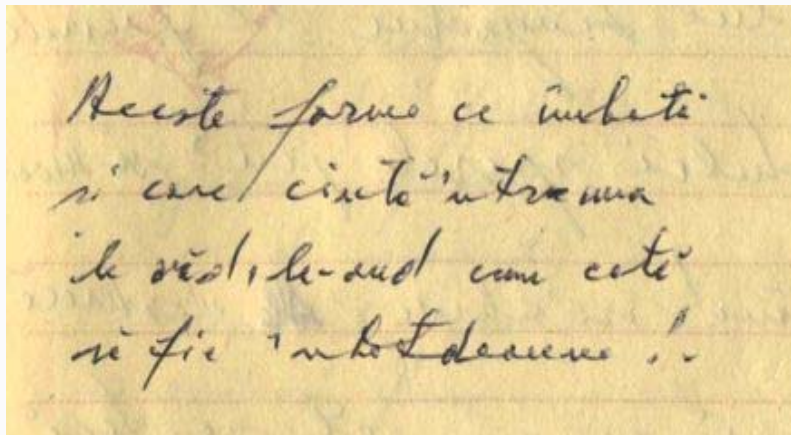 Aceste forme ce îmbată
și care cîntă 'ntr-una
le văd, le-aud cum cată
să fie 'ntotdeauna !.